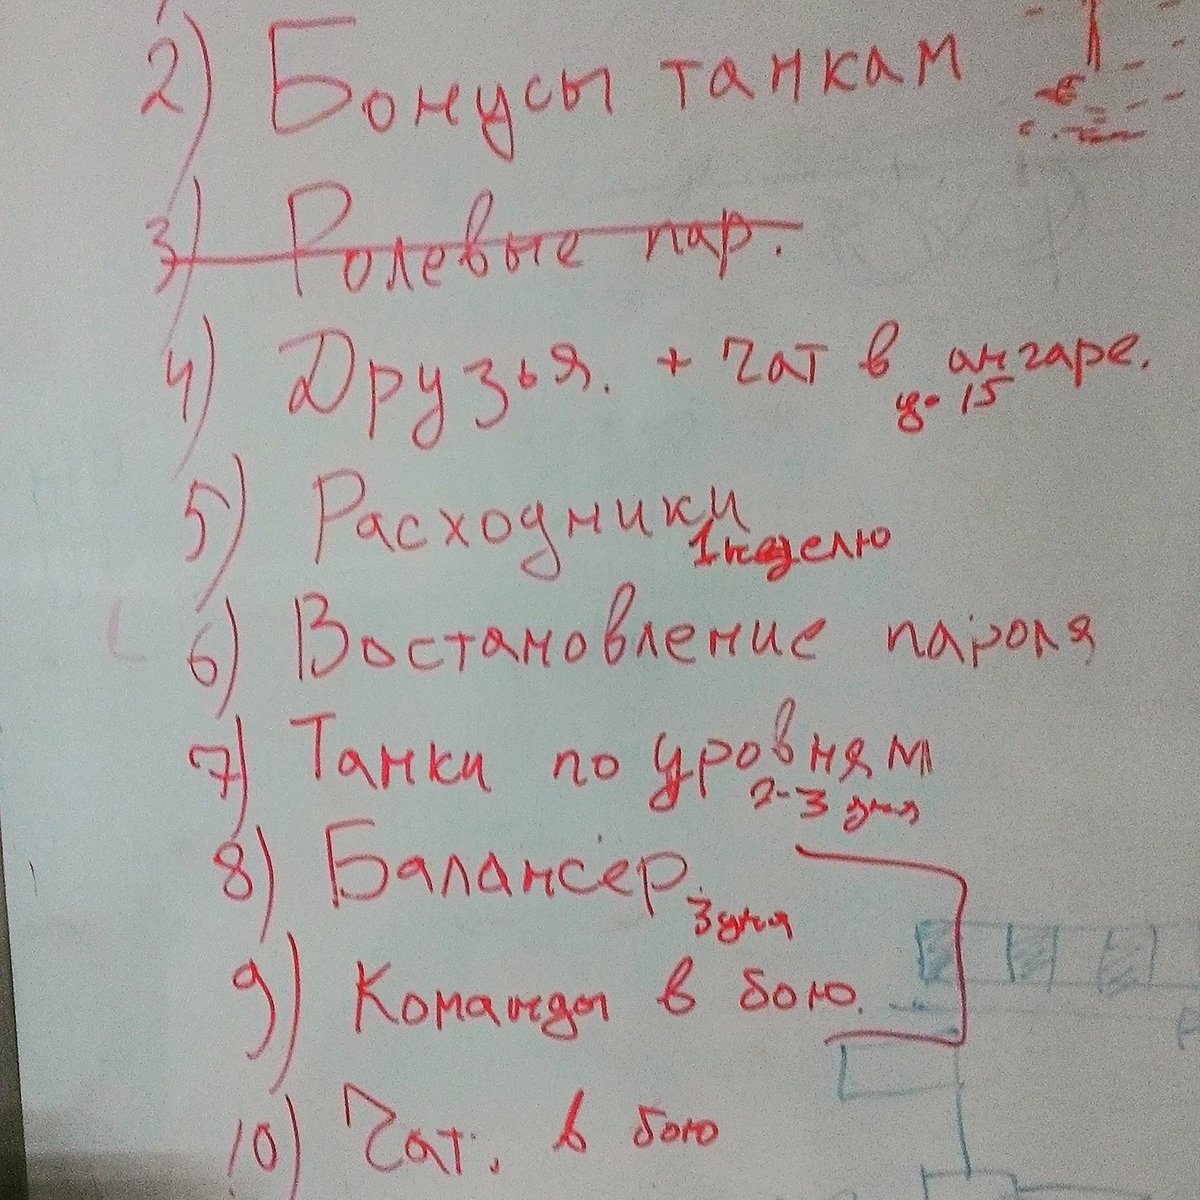 2) Бонусы танкам
3) Ролевые пар.
4) Друзья. + Чат в ангаре.
д. 15
5) Расходники
1 неделю
6) Востановление пароля
7) Танки по уровням
2-3 дня
8) Балансер.
3 дня
9) Команды в бою.
10) Чат. в бою